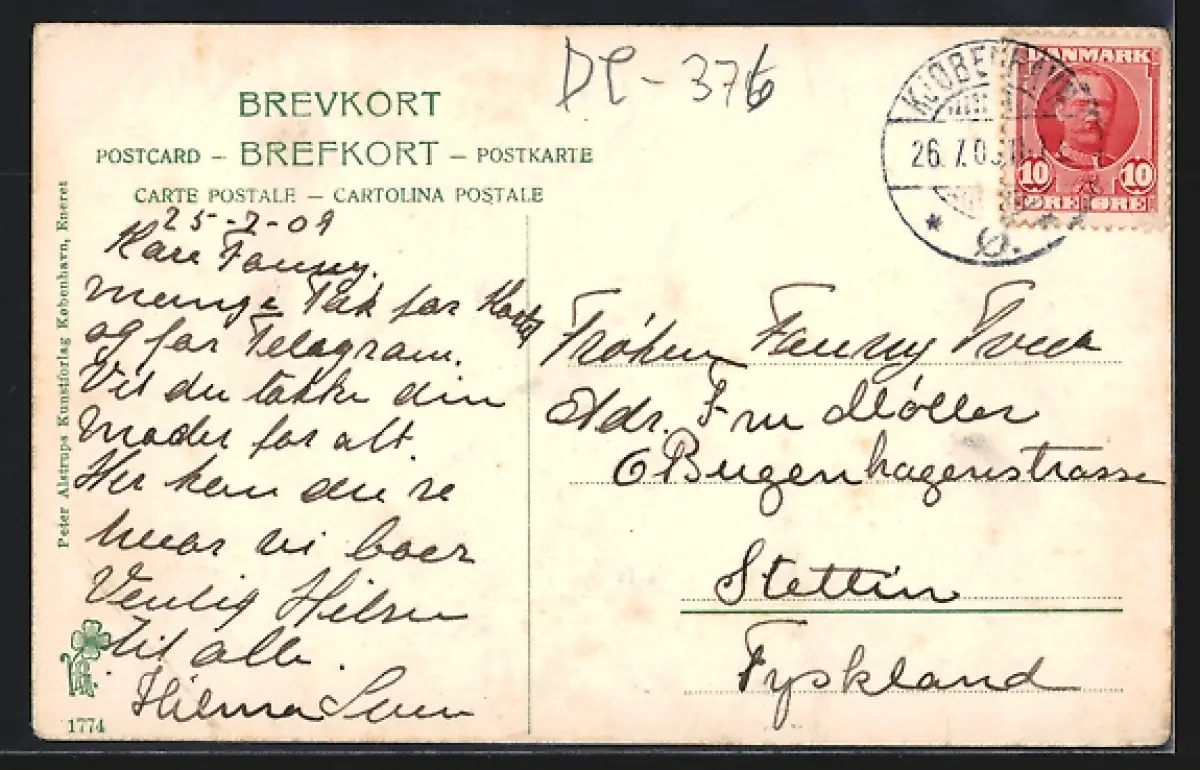 DC-376
BREVKORT
POSTCARD – BREFKORT – POSTKARTE
CARTE POSTALE – CARTOLINA POSTALE
KJØBENHAVN
26.7.09
Ø.
DANMARK
10 10
ØRE ØRE
25-7-09
Kære Fanny.
Mange Tak for Kortet
og for Telegram.
Vil du takke din
Moder for alt.
Her kan du se
hvor vi boer
Venlig Hilsen
til alle.
Hilma
Frøken Fanny
Adr. Fru Møller
6 Bugenhagenstrasse
Stettin
Tyskland
Peter Alstrups Kunstforlag København, Eneret
1774